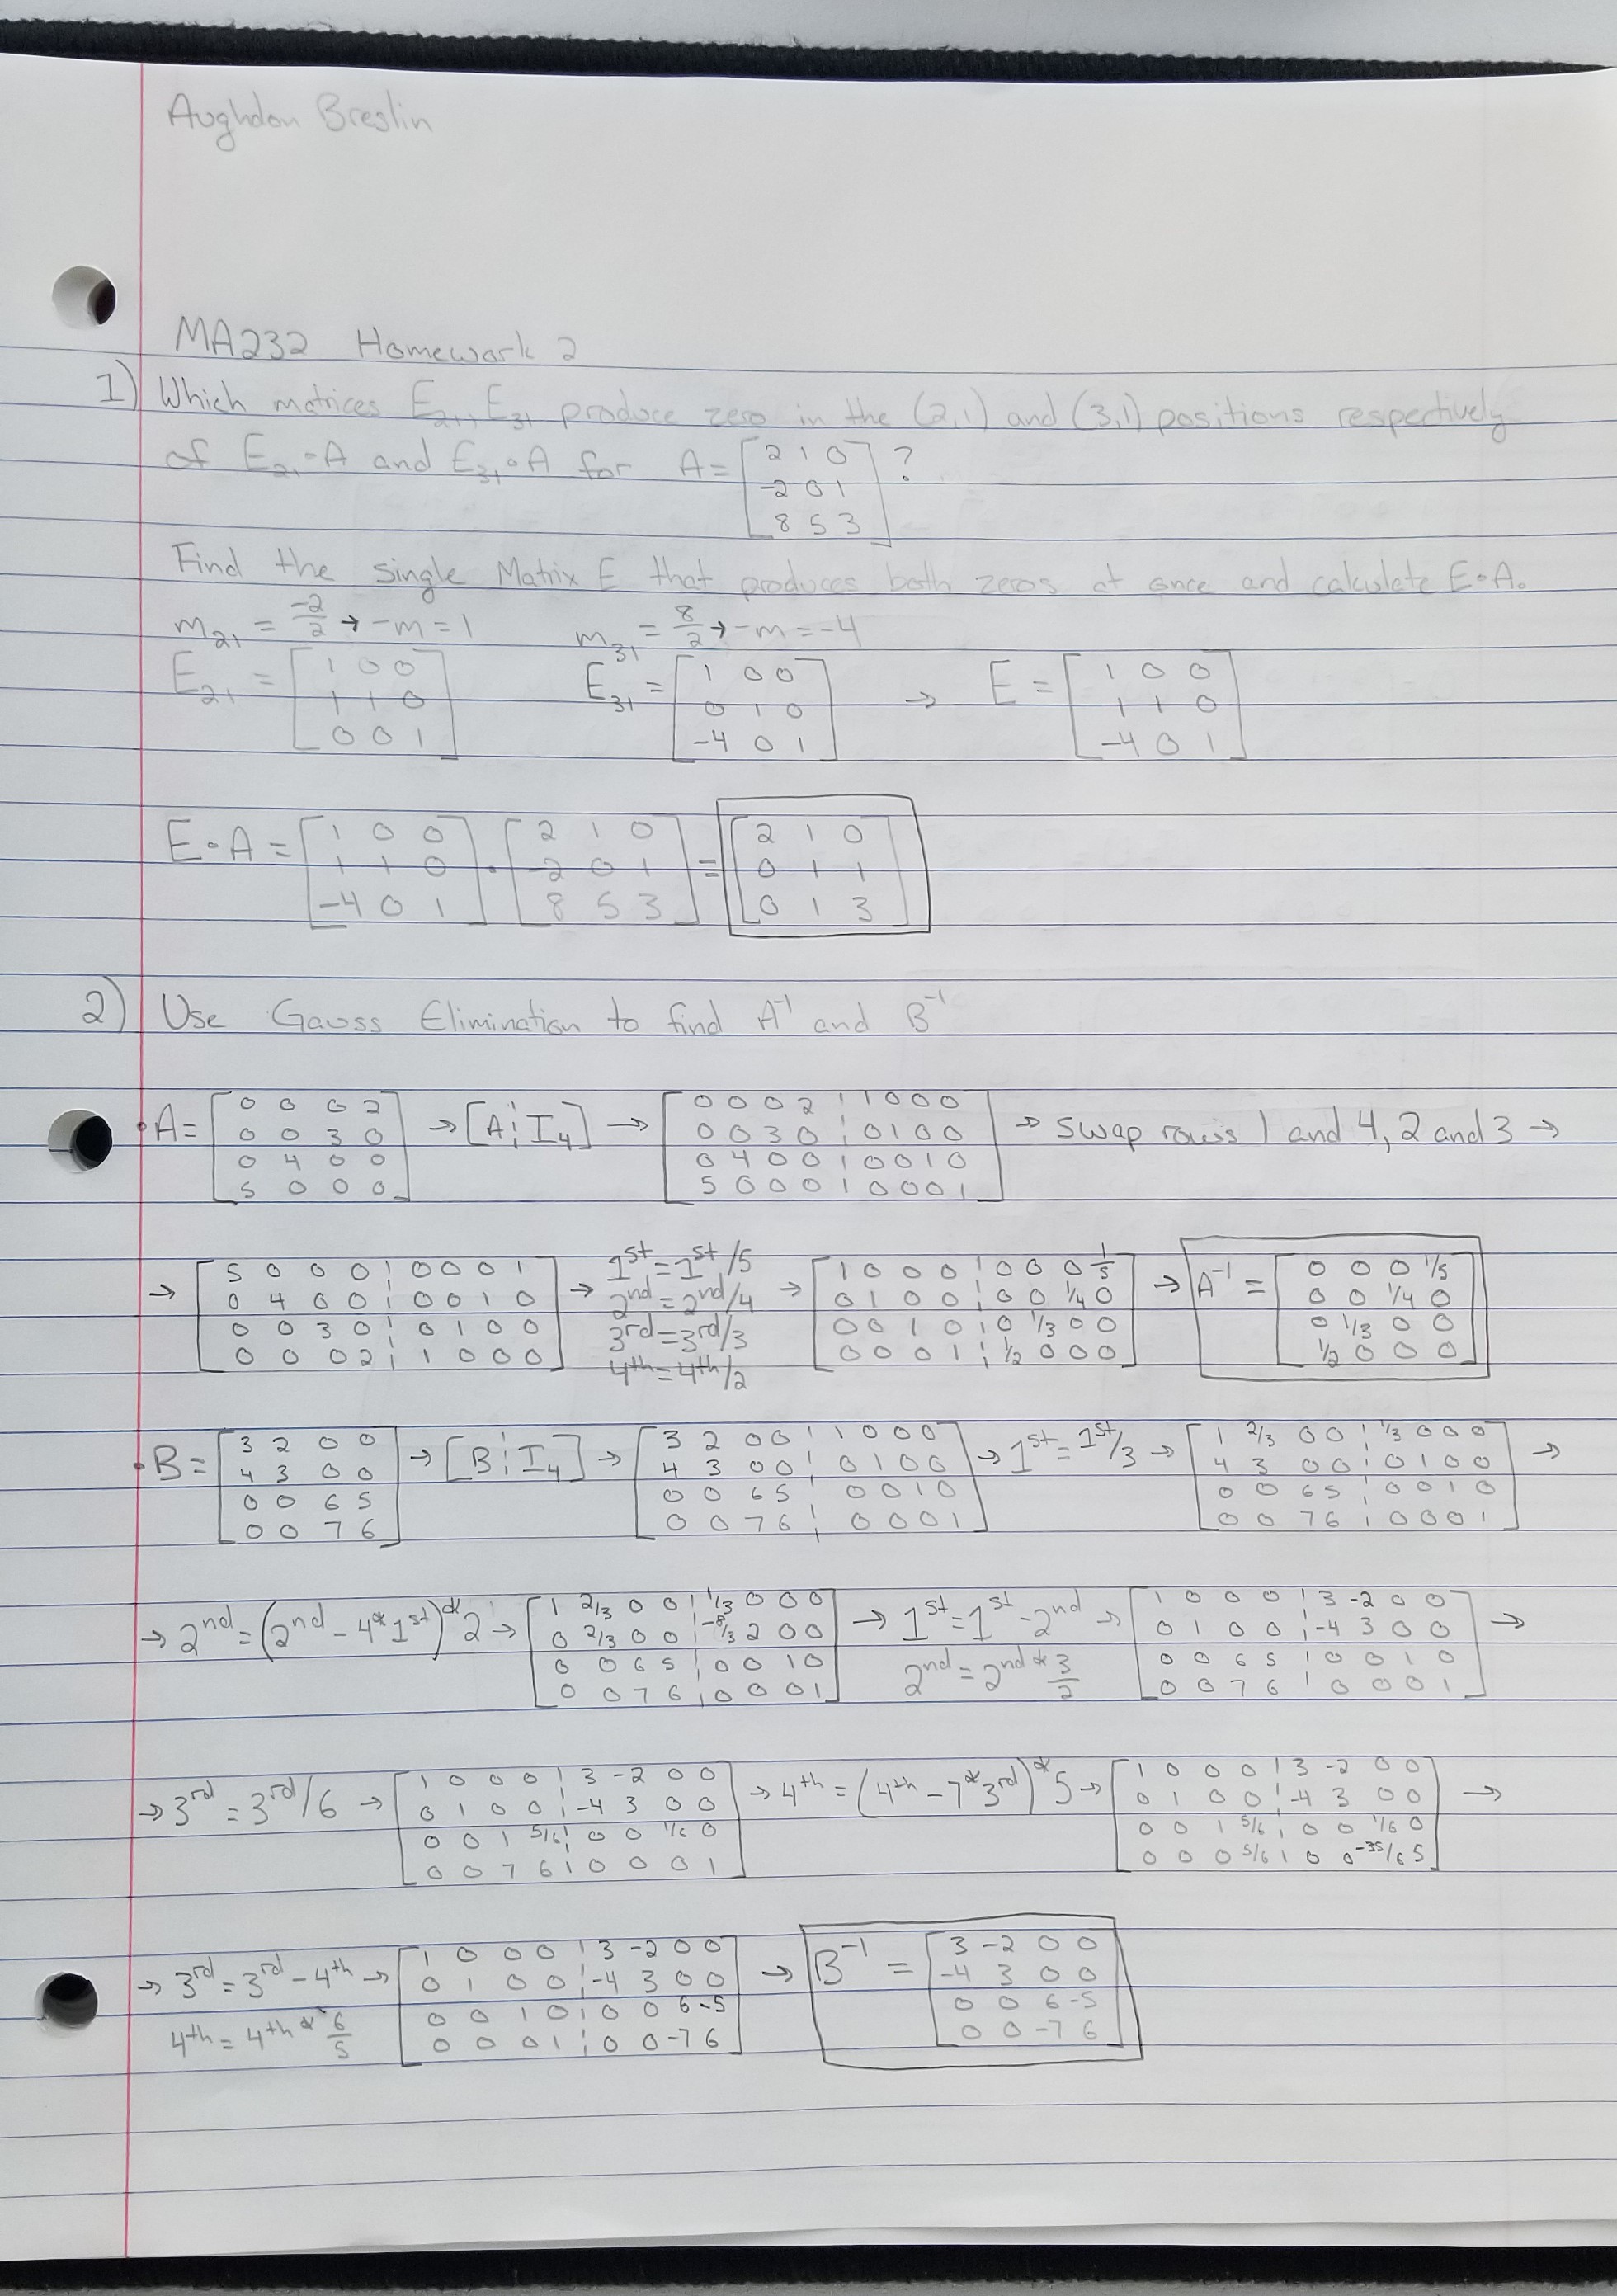 Aughdon Breslin
MA232 Homework 2
1) Which matrices E₂₁, E₃₁ produce zero in the (2,1) and (3,1) positions respectively
of E₂₁∘A and E₃₁∘A for A = [2 1 0; -2 0 1; 8 5 3] ?
Find the single Matrix E that produces both zeros at once and calculate E∘A.
m₂₁ = -2/2 → -m = 1 m₃₁ = 8/2 → -m = -4
E₂₁ = [1 0 0; 1 1 0; 0 0 1] E₃₁ = [1 0 0; 0 1 0; -4 0 1] → E = [1 0 0; 1 1 0; -4 0 1]
E∘A = [1 0 0; 1 1 0; -4 0 1] · [2 1 0; -2 0 1; 8 5 3] = [2 1 0; 0 1 1; 0 1 3]
2) Use Gauss Elimination to find A⁻¹ and B⁻¹
• A = [0 0 0 2; 0 0 3 0; 0 4 0 0; 5 0 0 0] → [A ¦ I₄] → [0 0 0 2 ¦ 1 0 0 0; 0 0 3 0 ¦ 0 1 0 0; 0 4 0 0 ¦ 0 0 1 0; 5 0 0 0 ¦ 0 0 0 1] → swap rows 1 and 4, 2 and 3 →
→ [5 0 0 0 ¦ 0 0 0 1; 0 4 0 0 ¦ 0 0 1 0; 0 0 3 0 ¦ 0 1 0 0; 0 0 0 2 ¦ 1 0 0 0] → 1st = 1st/5 2nd = 2nd/4 3rd = 3rd/3 4th = 4th/2 → [1 0 0 0 ¦ 0 0 0 1/5; 0 1 0 0 ¦ 0 0 1/4 0; 0 0 1 0 ¦ 0 1/3 0 0; 0 0 0 1 ¦ 1/2 0 0 0] → A⁻¹ = [0 0 0 1/5; 0 0 1/4 0; 0 1/3 0 0; 1/2 0 0 0]
• B = [3 2 0 0; 4 3 0 0; 0 0 6 5; 0 0 7 6] → [B ¦ I₄] → [3 2 0 0 ¦ 1 0 0 0; 4 3 0 0 ¦ 0 1 0 0; 0 0 6 5 ¦ 0 0 1 0; 0 0 7 6 ¦ 0 0 0 1] → 1st = 1st/3 → [1 2/3 0 0 ¦ 1/3 0 0 0; 4 3 0 0 ¦ 0 1 0 0; 0 0 6 5 ¦ 0 0 1 0; 0 0 7 6 ¦ 0 0 0 1] →
→ 2nd = (2nd - 4*1st)*2 → [1 2/3 0 0 ¦ 1/3 0 0 0; 0 2/3 0 0 ¦ -8/3 2 0 0; 0 0 6 5 ¦ 0 0 1 0; 0 0 7 6 ¦ 0 0 0 1] → 1st = 1st - 2nd 2nd = 2nd * 3/2 → [1 0 0 0 ¦ 3 -2 0 0; 0 1 0 0 ¦ -4 3 0 0; 0 0 6 5 ¦ 0 0 1 0; 0 0 7 6 ¦ 0 0 0 1] →
→ 3rd = 3rd/6 → [1 0 0 0 ¦ 3 -2 0 0; 0 1 0 0 ¦ -4 3 0 0; 0 0 1 5/6 ¦ 0 0 1/6 0; 0 0 7 6 ¦ 0 0 0 1] → 4th = (4th - 7*3rd)*5 → [1 0 0 0 ¦ 3 -2 0 0; 0 1 0 0 ¦ -4 3 0 0; 0 0 1 5/6 ¦ 0 0 1/6 0; 0 0 0 5/6 ¦ 0 0 -35/6 5] →
→ 3rd = 3rd - 4th 4th = 4th * 6/5 → [1 0 0 0 ¦ 3 -2 0 0; 0 1 0 0 ¦ -4 3 0 0; 0 0 1 0 ¦ 0 0 6 -5; 0 0 0 1 ¦ 0 0 -7 6] → B⁻¹ = [3 -2 0 0; -4 3 0 0; 0 0 6 -5; 0 0 -7 6]